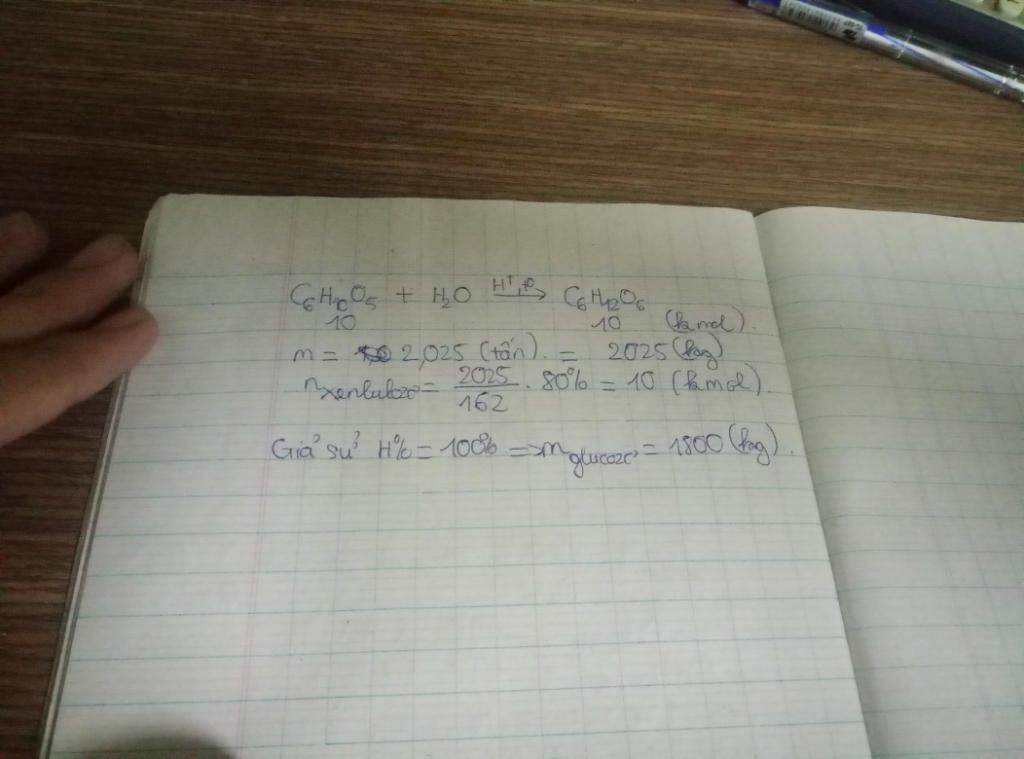 C6H10O5 + H2O H+, to→ C6H12O6
10 10 (kmol).
m = 2,025 (tấn). = 2025 (kg)
nxenlulozơ = 2025/162 . 80% = 10 (kmol).
Giả sử H% = 100% => mglucozơ = 1800 (kg).